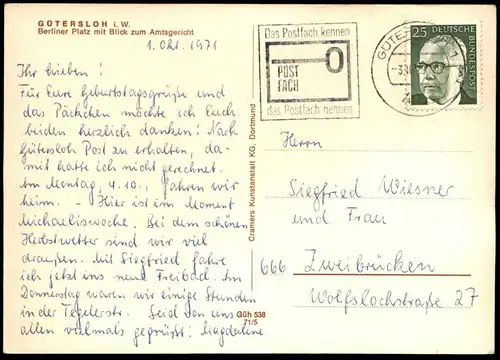 GÜTERSLOH i. W.
Berliner Platz mit Blick zum Amtsgericht
1. Okt. 1971
Ihr Lieben!
Für Eure Geburtstagsgrüße und
das Päckchen möchte ich Euch
beiden herzlich danken! Nach
Gütersloh Post zu erhalten, da-
mit hatte ich nicht gerechnet.
Am Montag, 4.10., fahren wir
heim. - Hier ist im Moment
Michaeliswoche. Bei dem schönen
Herbstwetter sind wir viel
draußen. Mit Siegfried fahre
ich jetzt ins neue Freibad. Am
Donnerstag waren wir einige Stunden
in der Tegelerstr. Seid von uns
allen vielmals gegrüßt! Magdalene
Cramers Kunstanstalt KG, Dortmund
GGh 538
71/5
Das Postfach kennen
POST
FACH
das Postfach nennen
25 DEUTSCHE
BUNDESPOST
Herrn
Siegfried Wiesner
und Frau
666 Zweibrücken
Wolfslochstraße 27